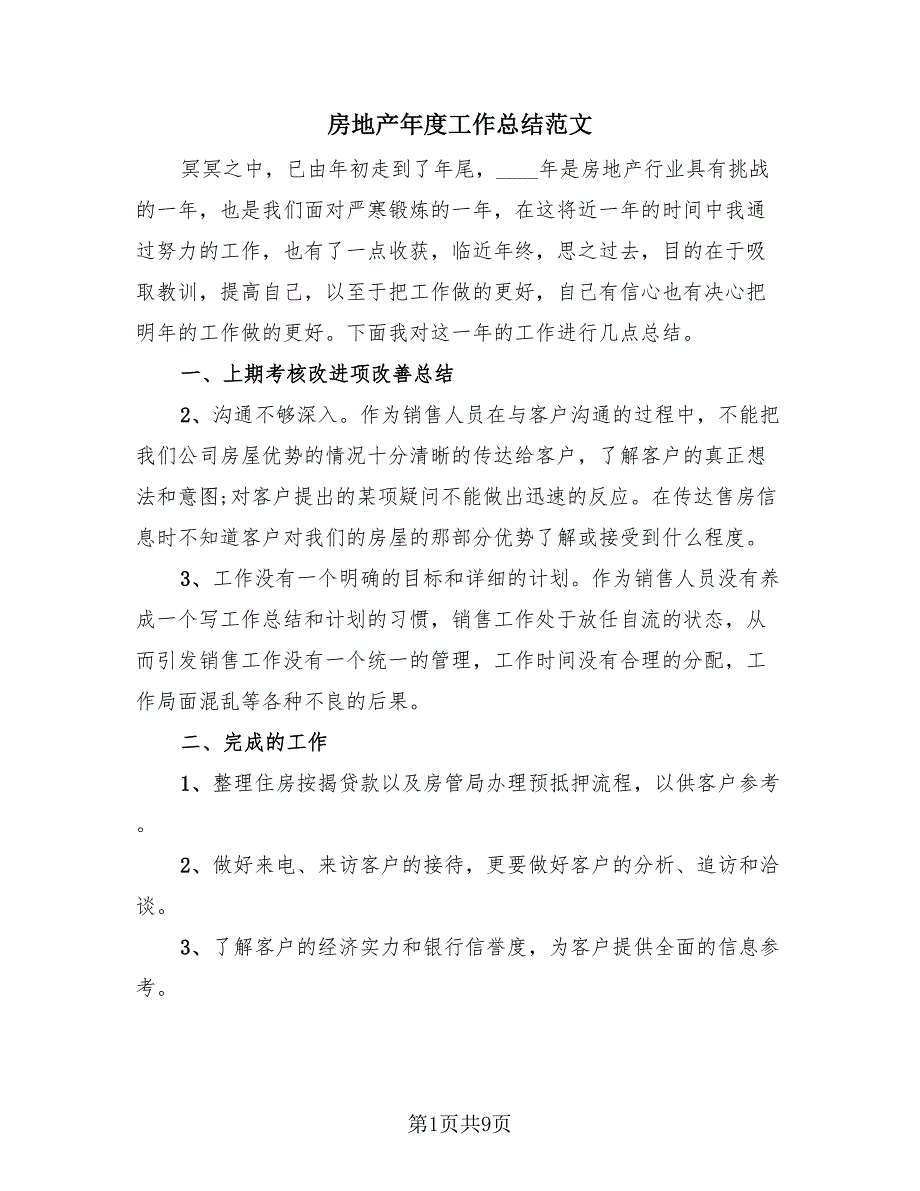 房地产年度工作总结范文
冥冥之中，已由年初走到了年尾，____年是房地产行业具有挑战
的一年，也是我们面对严寒锻炼的一年，在这将近一年的时间中我通
过努力的工作，也有了一点收获，临近年终，思之过去，目的在于吸
取教训，提高自己，以至于把工作做的更好，自己有信心也有决心把
明年的工作做的更好。下面我对这一年的工作进行几点总结。
一、上期考核改进项改善总结
2、沟通不够深入。作为销售人员在与客户沟通的过程中，不能把
我们公司房屋优势的情况十分清晰的传达给客户，了解客户的真正想
法和意图;对客户提出的某项疑问不能做出迅速的反应。在传达售房信
息时不知道客户对我们的房屋的那部分优势了解或接受到什么程度。
3、工作没有一个明确的目标和详细的计划。作为销售人员没有养
成一个写工作总结和计划的习惯，销售工作处于放任自流的状态，从
而引发销售工作没有一个统一的管理，工作时间没有合理的分配，工
作局面混乱等各种不良的后果。
二、完成的工作
1、整理住房按揭贷款以及房管局办理预抵押流程，以供客户参考
。
2、做好来电、来访客户的接待，更要做好客户的分析、追访和洽
谈。
3、了解客户的经济实力和银行信誉度，为客户提供全面的信息参
考。
第1页共9页